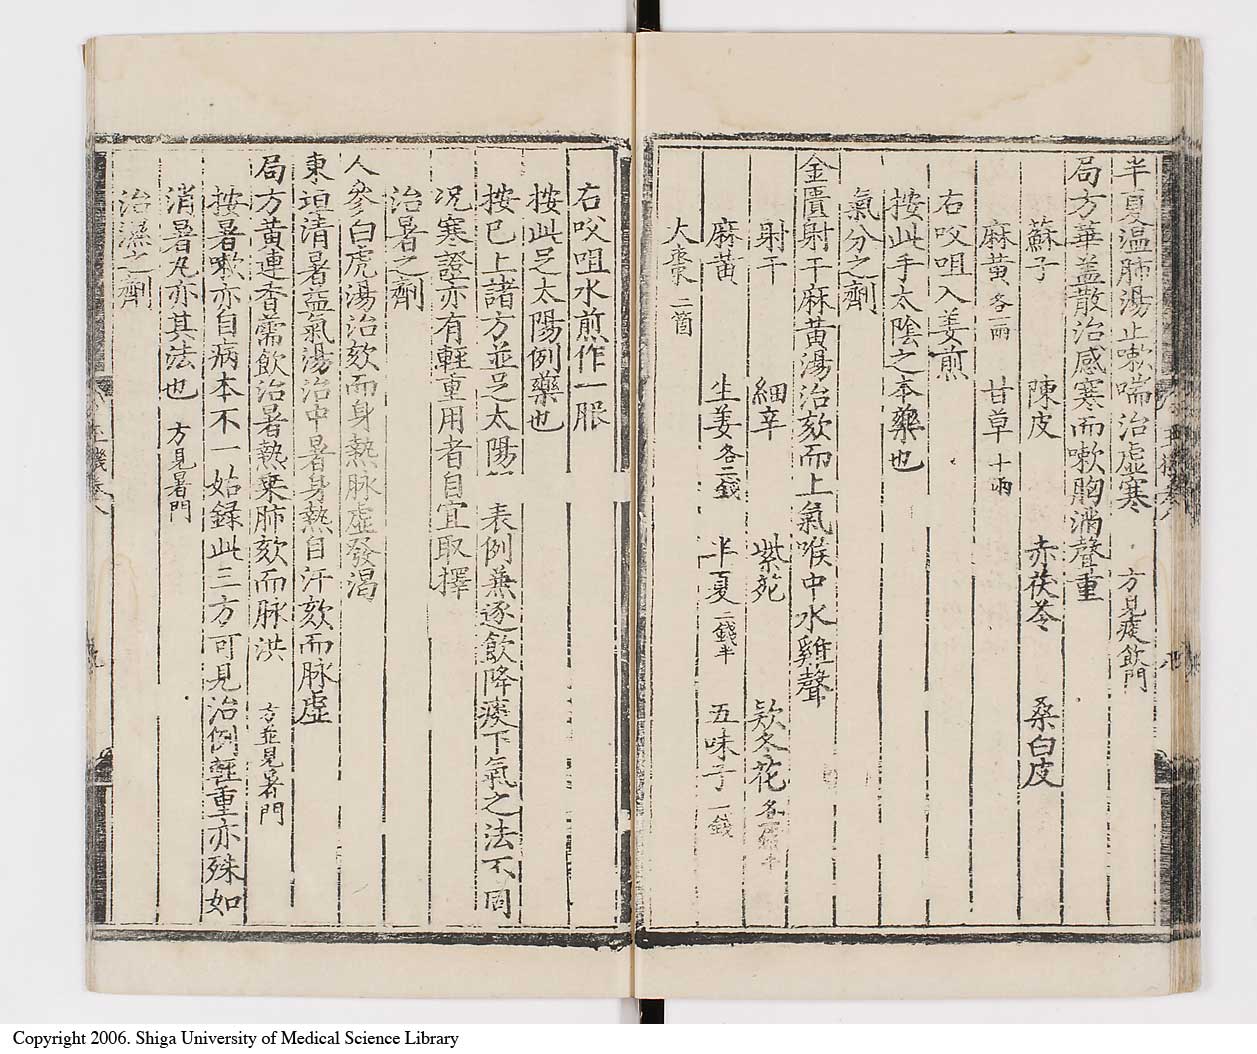 半夏温肺湯止嗽喘治虚寒 方見痰飲門
局方華蓋散治感寒而嗽胸滿聲重
蘇子 陳皮 赤茯苓 桑白皮
麻黄各一兩 甘草十兩
右㕮咀入姜煎
按此手太陰之本藥也
氣分之劑
金匱射干麻黄湯治欬而上氣喉中水雞聲
射干 細辛 紫菀 欵冬花
麻黄 生姜各二錢 半夏二錢半 五味子一錢
大棗二箇
右㕮咀水煎作一服
按此足太陽例藥也
按已上諸方並足太陽 表例兼逐飲降痰下氣之法不同
况寒證亦有輕重用者自宜取擇
治暑之劑
人參白虎湯治欬而身熱脉虚發渴
東垣清暑益氣湯治中暑身熱自汗欬而脉虚
局方黄連香薷飲治暑熱乗肺欬而脉洪 方並見暑門
按暑嗽亦自病本不一姑録此三方可見治例輕重亦殊如
消暑丸亦其法也 方見暑門
治濕之劑
Copyright 2006. Shiga University of Medical Science Library